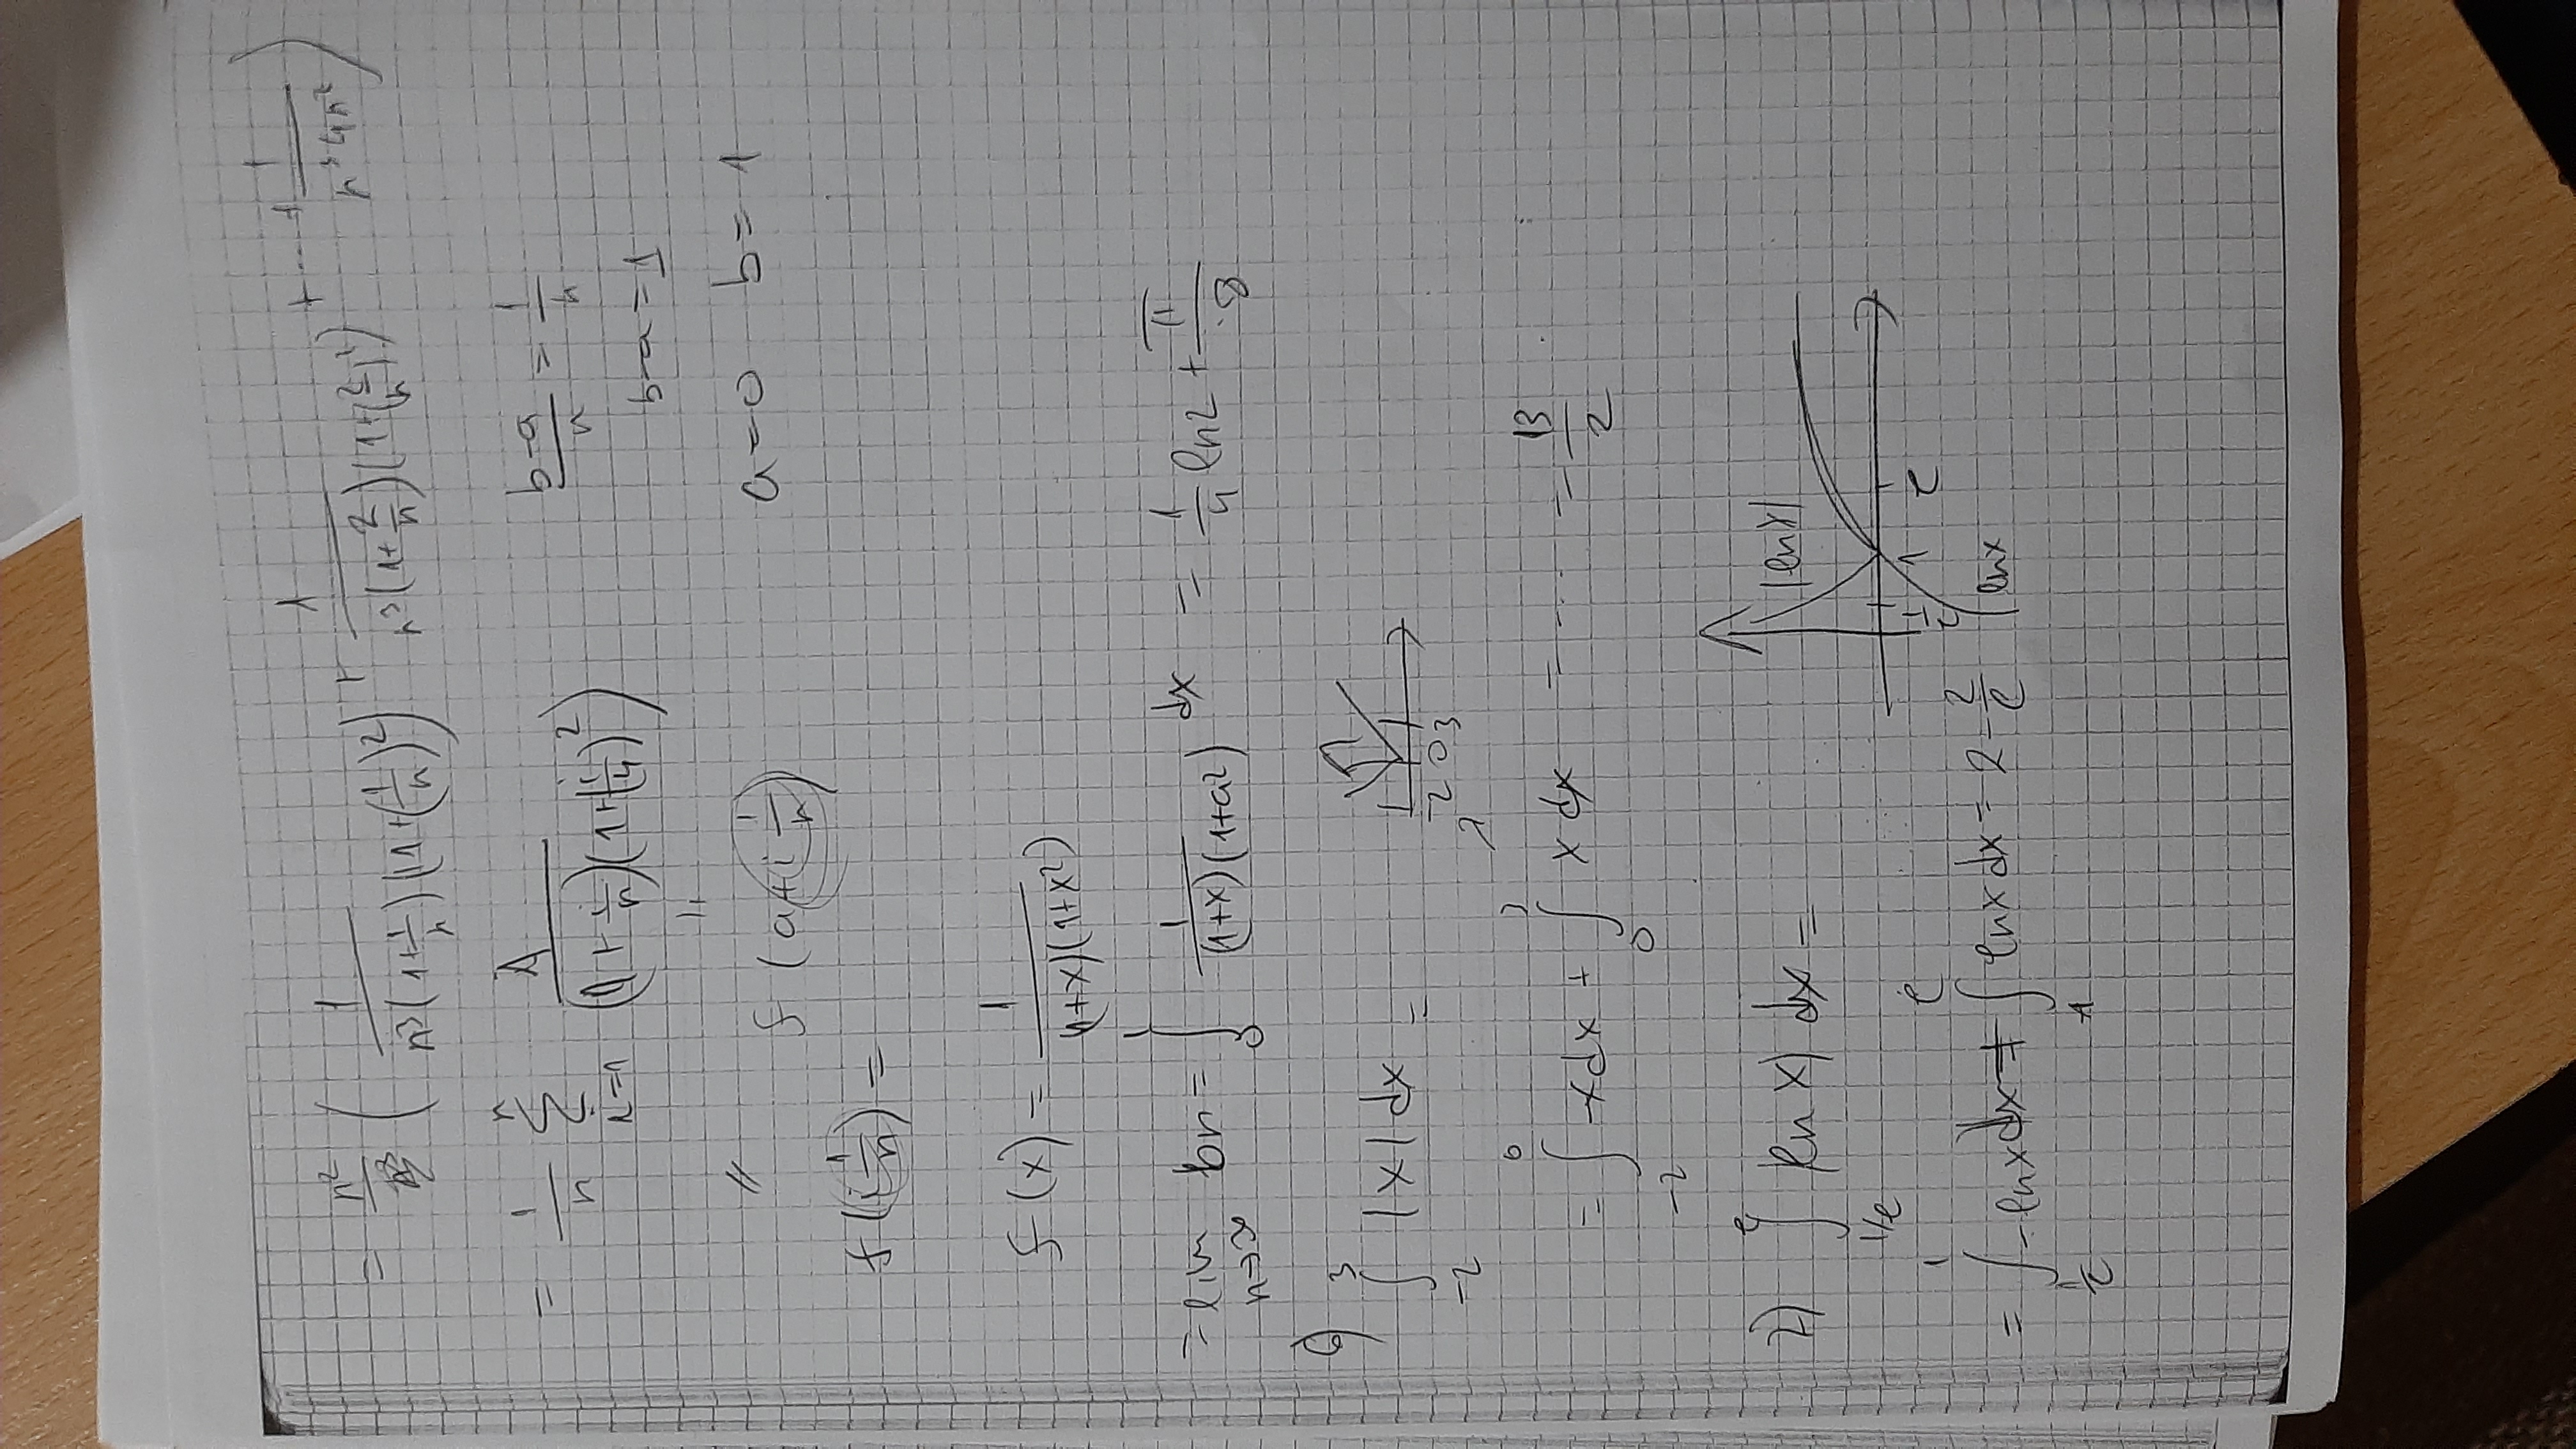 = n² ( 1/(n³(1+1/n)(1+(1/n)²)) + 1/(n³(1+2/n)(1+(2/n)²)) + ... + 1/(n³ 4n²) )
= 1/n ∑_{i=1}^{n} 1/((1+i/n)(1+(i/n)²))
(b-a)/n = 1/n
b-a=1
" "
f(a+i 1/n)
a=0 b=1
f(i 1/n) =
f(x) = 1/((1+x)(1+x²))
= lim_{n→∞} bn = ∫_0^1 1/((1+x)(1+a2)) dx = 1/4 ln2 + π/8
6) ∫_{-2}^{3} |x| dx =
-2 0 3
= ∫_{-2}^{0} -x dx + ∫_0^3 x dx = .... = 13/2
2) ∫_{1/e}^{e} |ln x| dx =
|ln x|
1/e 1 e
= ∫_{1/e}^{1} -ln x dx + ∫_1^e ln x dx = 2 - 2/e
ln x